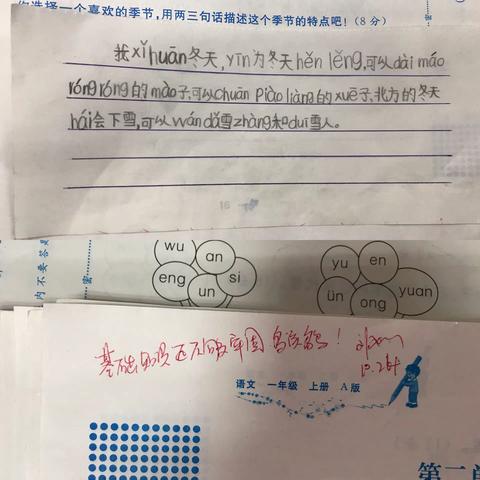 选择一个喜欢的季节,用两三句话描述这个季节的特点吧!(8分)
我xǐhuān冬天,yīn为冬天hěn lěng,可以dài máo
róngróng的mào子,可以chuān piàoliàng的xuē子,北方的冬天
hái会下雪,可以wán dǎ雪zhàng和duī雪人。
16
wu
an
eng
si
un
yu
en
ün
ong
yuan
内不要答题
密
基础知识还不够牢固
语文 一年级 上册 A版
第二单